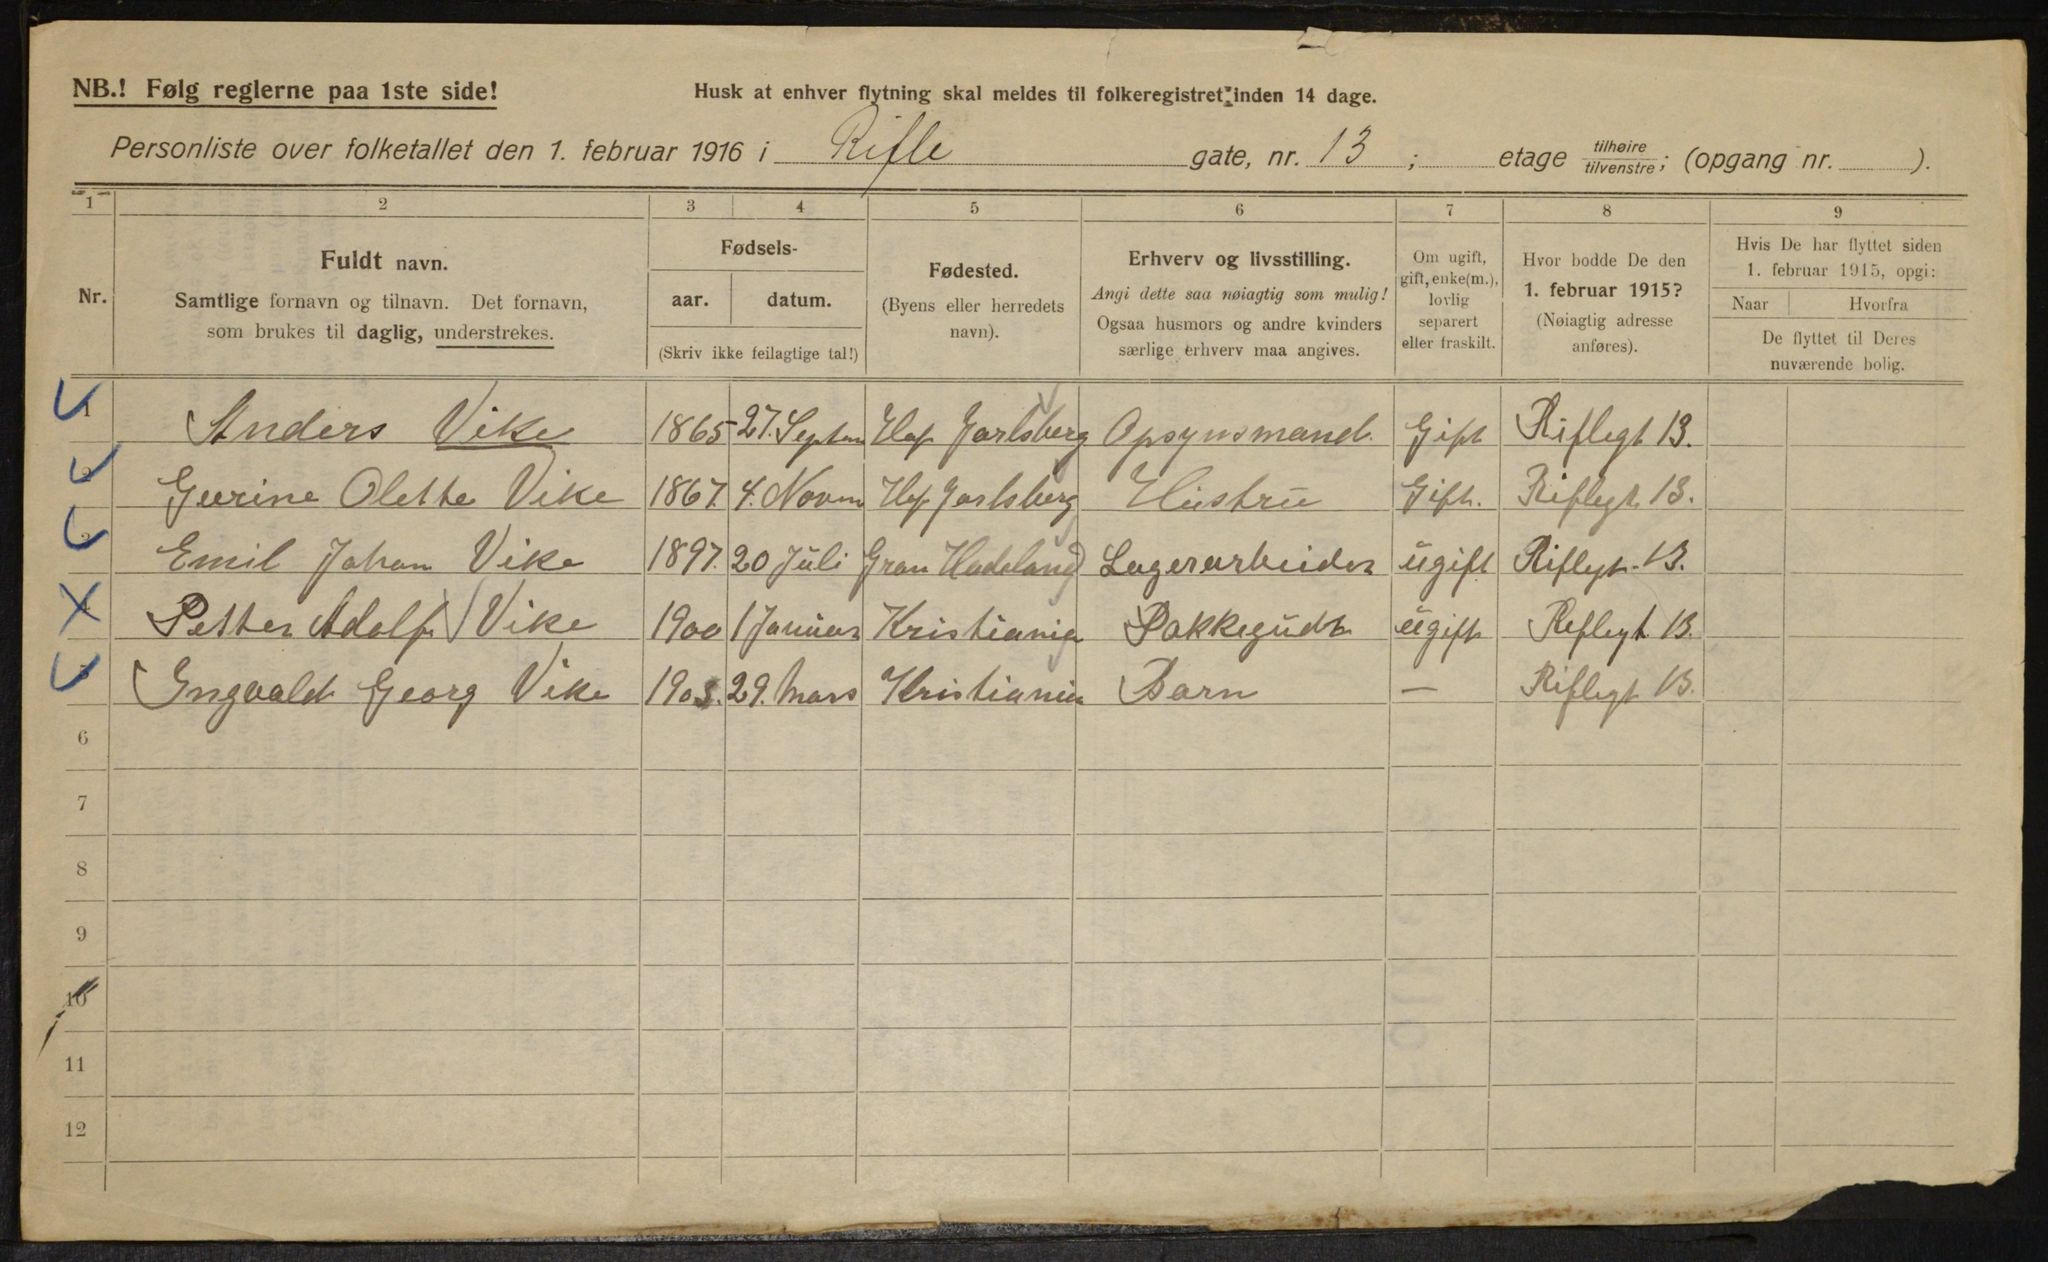 NB.! Følg reglerne paa 1ste side!
Husk at enhver flytning skal meldes til folkeregistret inden 14 dage.
Personliste over folketallet den 1. februar 1916 i Rifle gate, nr. 13 ; etage tilhøire/tilvenstre; (opgang nr. ).
1 2 3 4 5 6 7 8 9
Nr.
Fuldt navn.
Samtlige fornavn og tilnavn. Det fornavn,
som brukes til daglig, understrekes.
Fødsels-
aar. datum.
(Skriv ikke feilagtige tal!)
Fødested.
(Byens eller herredets
navn).
Erhverv og livsstilling.
Angi dette saa nøiagtig som mulig!
Ogsaa husmors og andre kvinders
særlige erhverv maa angives.
Om ugift,
gift, enke(m.),
lovlig
separert
eller fraskilt.
Hvor bodde De den
1. februar 1915?
(Nøiagtig adresse
anføres).
Hvis De har flyttet siden
1. februar 1915, opgi:
Naar Hvorfra
De flyttet til Deres
nuværende bolig.
1 Anders Vike 1865 27. Septem Hof Jarlsberg Opsynsmand. Gift Riflegt 13.
2 Gurine Olette Vike 1867. 4. Novm Hof Jarlsberg Hustru Gift. Riflegt 13.
3 Emil Johan Vike 1897. 20 Juli Gran Hadeland Lagerarbeider ugift Riflegt. 13.
4 Petter Adolf Vike 1900 1 Januar Kristiania Pakkegudt ugift Riflegt 13.
5 Ingvald Georg Vike 1903. 29. Mars Kristiania Barn — Riflegt 13.
6
7
8
9
10
11
12